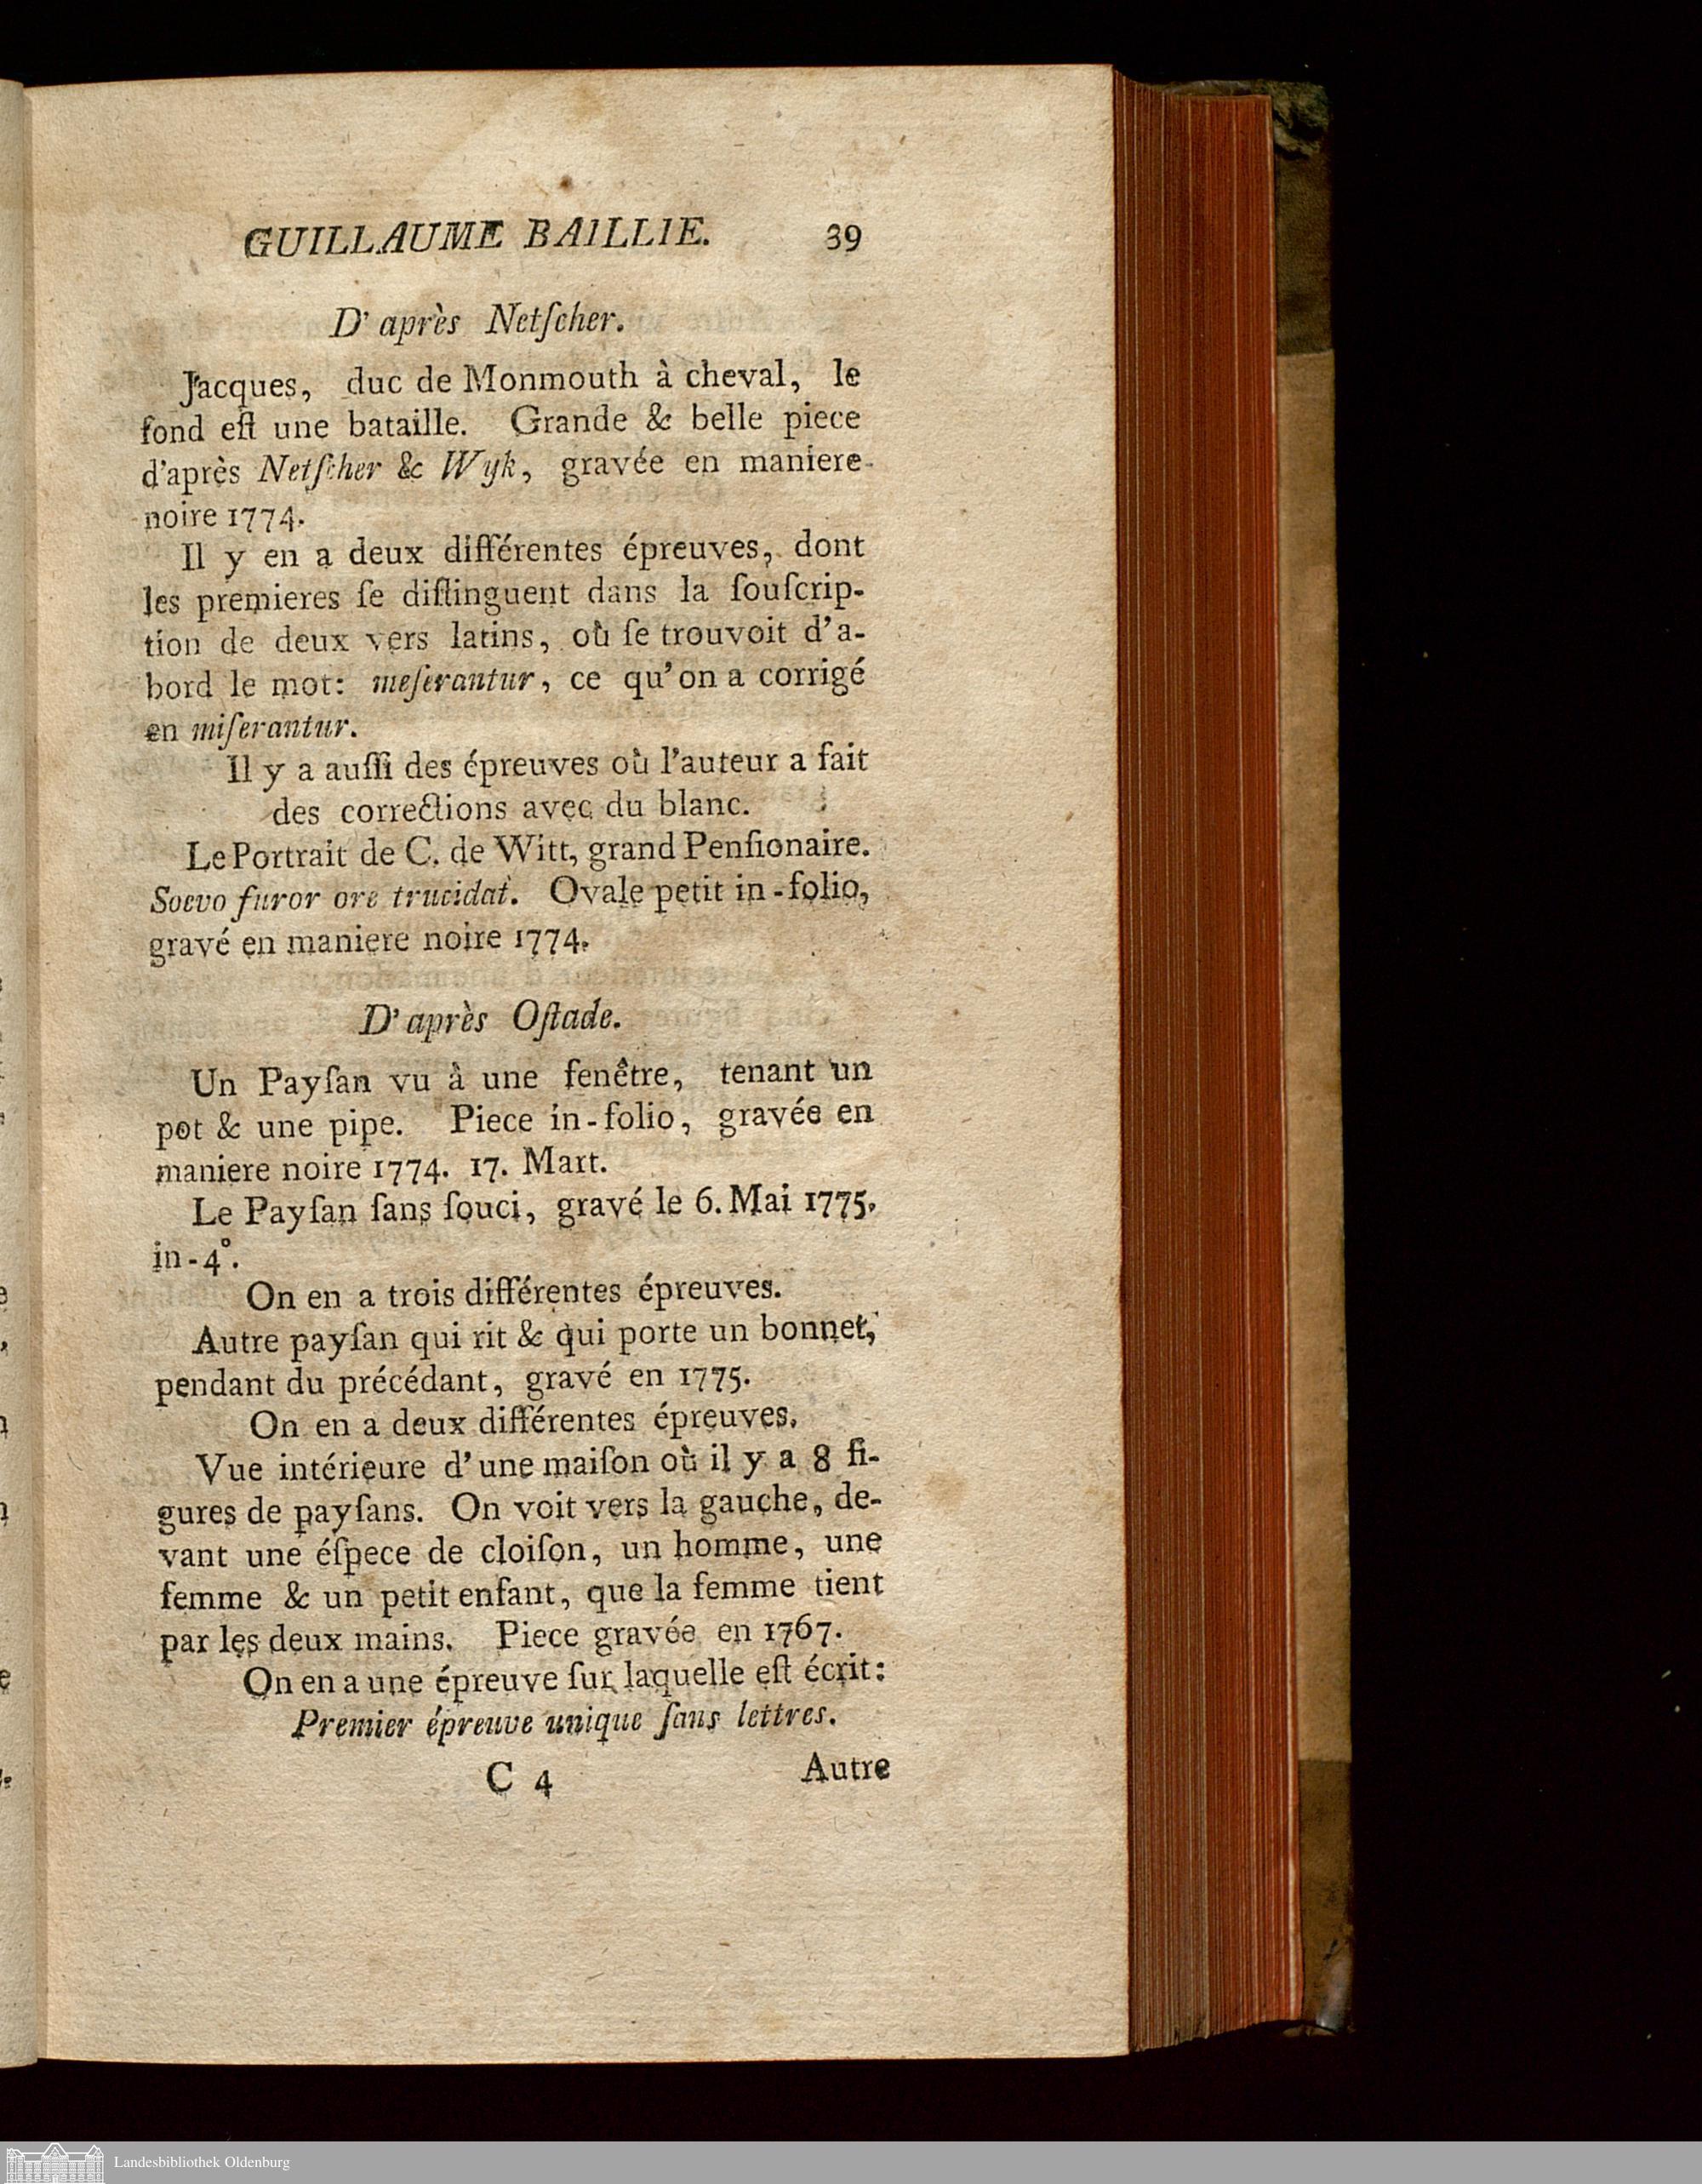 GUILLAUME BAILLIE. 39
D' après Netſcher.
Jacques, duc de Monmouth à cheval, le
fond eſt une bataille. Grande & belle piece
d'après Netſcher & Wyk, gravée en maniere
noire 1774.
Il y en a deux différentes épreuves, dont
les premieres ſe diſtinguent dans la ſouſcrip-
tion de deux vers latins, où ſe trouvoit d'a-
bord le mot: meſerantur, ce qu'on a corrigé
en miſerantur.
Il y a auſſi des épreuves où l'auteur a fait
des corrections avec du blanc.
Le Portrait de C. de Witt, grand Penſionaire.
Soevo furor ore trucidat. Ovale petit in-folio,
gravé en maniere noire 1774.
D' après Oſtade.
Un Payſan vu à une fenêtre, tenant un
pot & une pipe. Piece in-folio, gravée en
maniere noire 1774. 17. Mart.
Le Payſan ſans ſouci, gravé le 6. Mai 1775.
in-4°.
On en a trois différentes épreuves.
Autre payſan qui rit & qui porte un bonnet,
pendant du précédant, gravé en 1775.
On en a deux différentes épreuves.
Vue intérieure d'une maiſon où il y a 8 fi-
gures de payſans. On voit vers la gauche, de-
vant une éſpece de cloiſon, un homme, une
femme & un petit enfant, que la femme tient
par les deux mains. Piece gravée en 1767.
On en a une épreuve ſur laquelle eſt écrit:
Premier épreuve unique ſans lettres.
C 4 Autre
Landesbibliothek Oldenburg